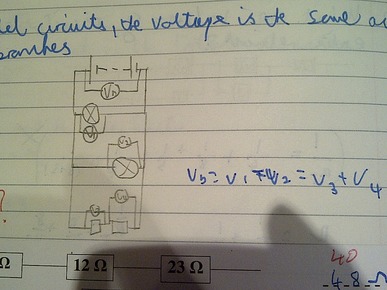 lel circuits, the voltage is the same a
branches
Vb
V1
V2
Vb = V1 = V2 = V3 + V4
?
V3
V4
Ω
12 Ω
23 Ω
40
4.8 Ω